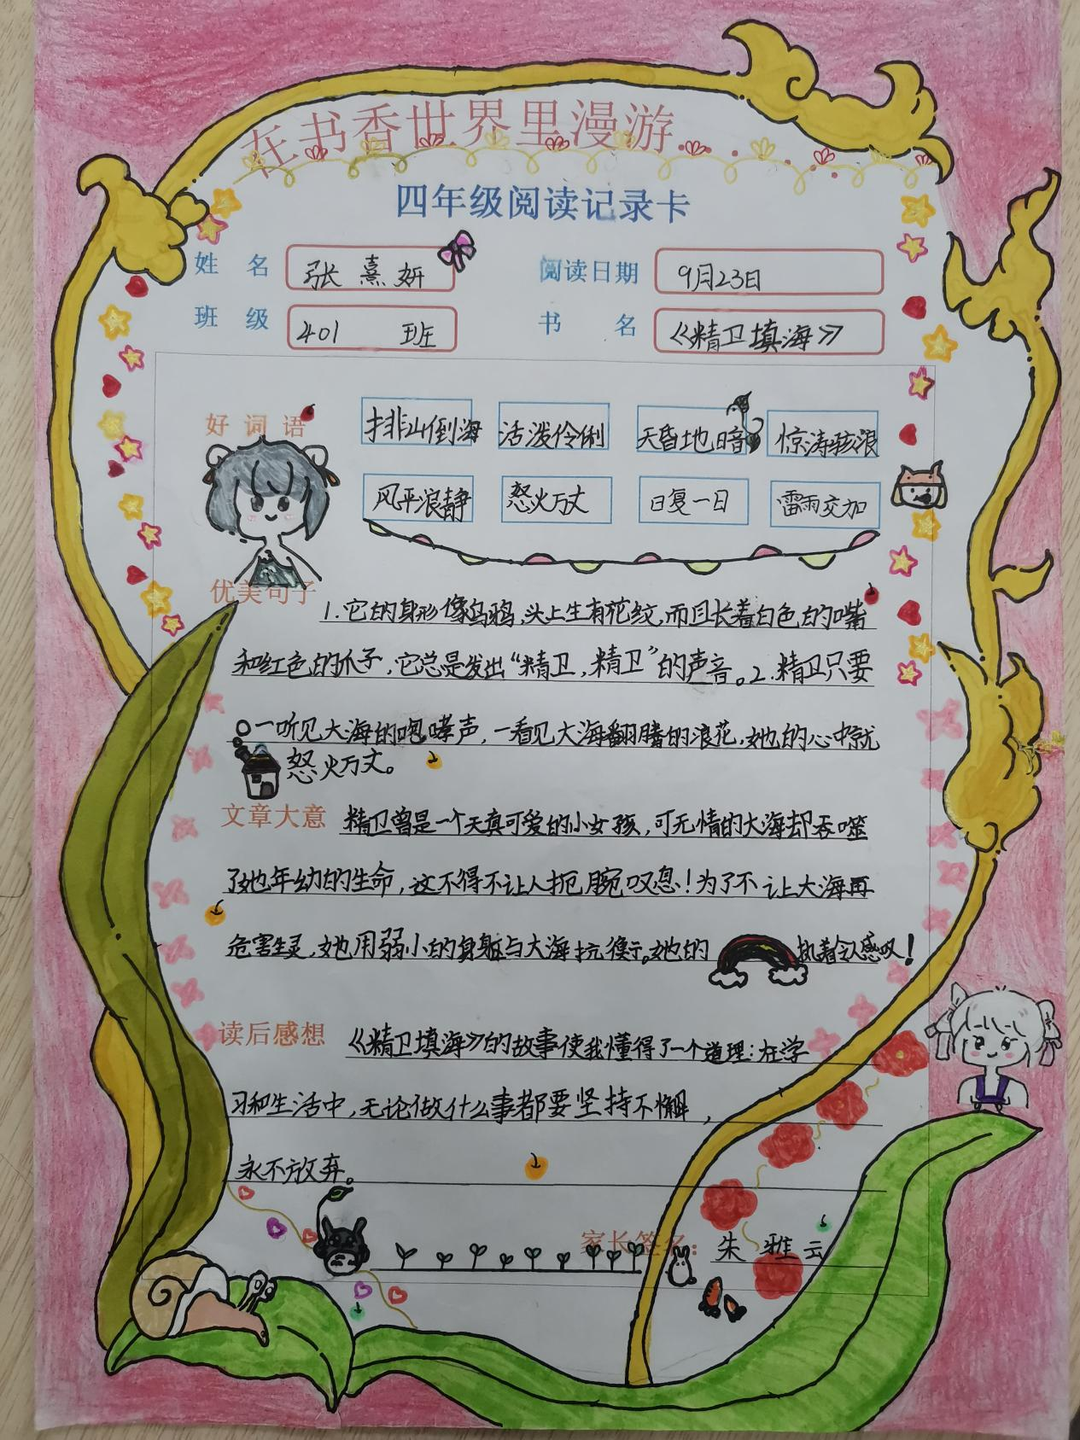 在书香世界里漫游
四年级阅读记录卡
姓 名 张熹妍 阅读日期 9月23日
班 级 401 班 书 名 《精卫填海》
好词语 排山倒海 活泼伶俐 天昏地暗 惊涛骇浪
风平浪静 怒火万丈 日复一日 雷雨交加
优美句子
1.它的身形像乌鸦,头上生有花纹,而且长着白色的嘴
和红色的爪子,它总是发出“精卫,精卫”的声音。2.精卫只要
一听见大海的咆哮声,一看见大海翻腾的浪花,她的心中就
怒火万丈。
文章大意 精卫曾是一个天真可爱的小女孩,可无情的大海却吞噬
了她年幼的生命,这不得不让人扼腕叹息!为了不让大海再
危害生灵,她用弱小的身躯与大海抗衡。她的执着令人感叹!
读后感想 《精卫填海》的故事使我懂得了一个道理:在学
习和生活中,无论做什么事都要坚持不懈,
永不放弃。
家长签名: 朱雅云